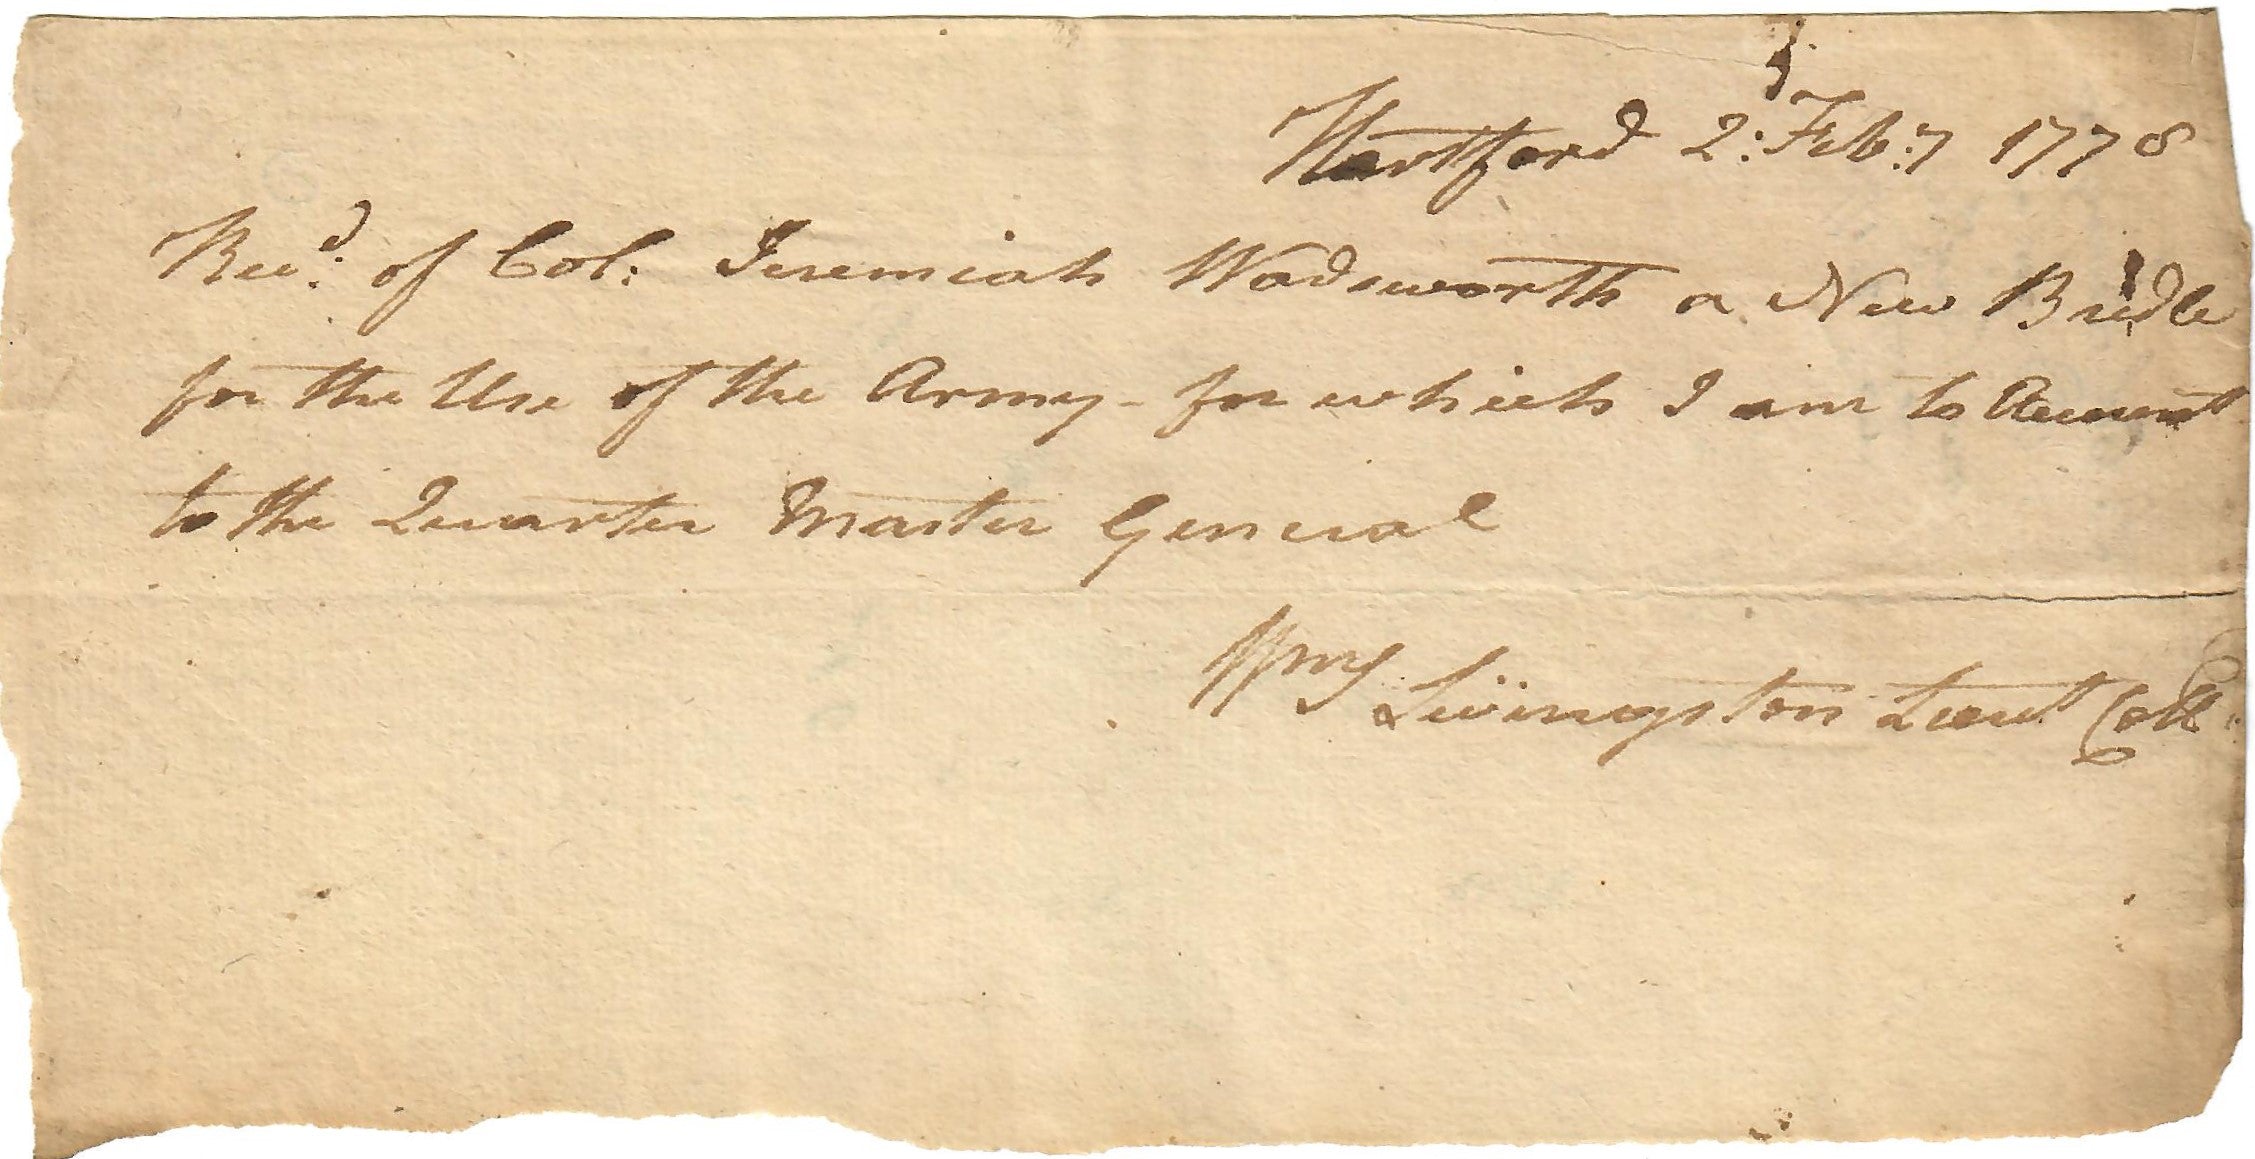 Hartford 2: Feb:y 1778
Rec:d of Col: Jeremiah Wadsworth a New Bridle
for the Use of the Army - for which I am to Account
to the Quarter Master General
Wm S Livingston Lieut Coll